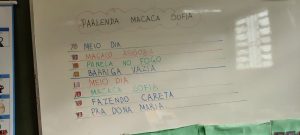 PARLENDA MACACA SOFIA
MEIO DIA
MACACO ASSOBIA
PANELA NO FOGO
BARRIGA VAZIA
MEIO DIA
MACACA SOFIA
FAZENDO CARETA
PRA DONA MARIA